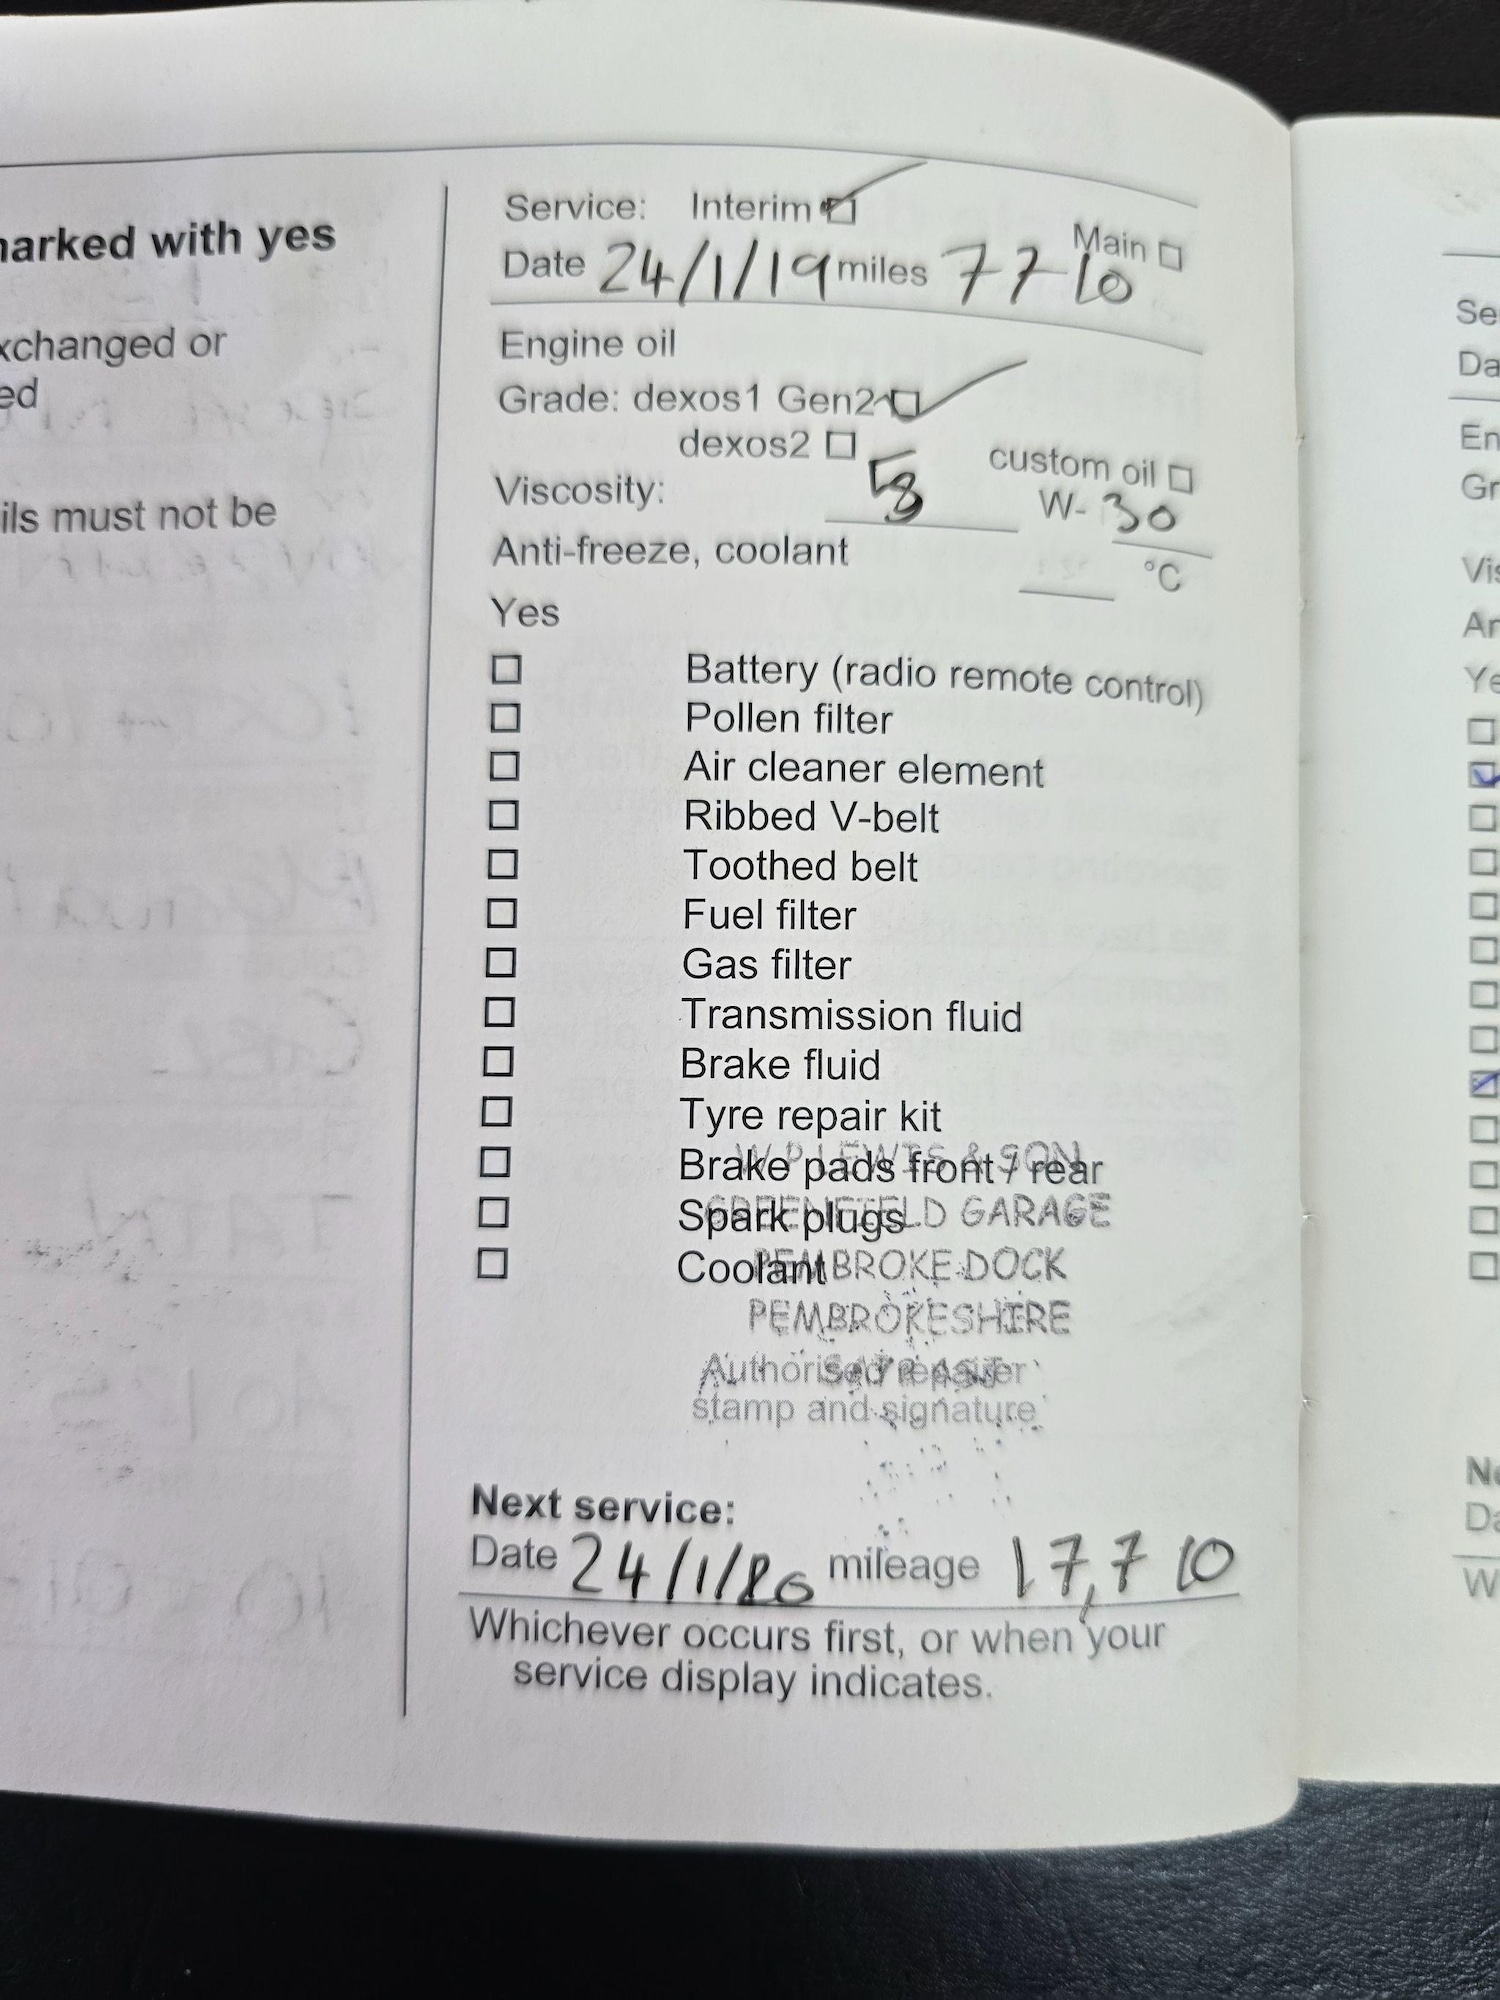 marked with yes
xchanged or
ed
ils must not be
Service: Interim ☑ Main ☐
Date 24/1/19 miles 7710
Engine oil
Grade: dexos1 Gen2 ☑
dexos2 ☐ custom oil ☐
Viscosity: W-30
Anti-freeze, coolant °C
Yes
☐ Battery (radio remote control)
☐ Pollen filter
☐ Air cleaner element
☐ Ribbed V-belt
☐ Toothed belt
☐ Fuel filter
☐ Gas filter
☐ Transmission fluid
☐ Brake fluid
☐ Tyre repair kit
☐ Brake pads front / rear
W P LEWIS & SON
☐ Spark plugs
GREENFIELD GARAGE
☐ Coolant
PEMBROKE DOCK
PEMBROKESHIRE
Authorised repairer
stamp and signature
Next service:
Date 24/1/20 mileage 17,710
Whichever occurs first, or when your
service display indicates.
Se
Da
En
Gr
Vis
An
Ye
Ne
Da
W